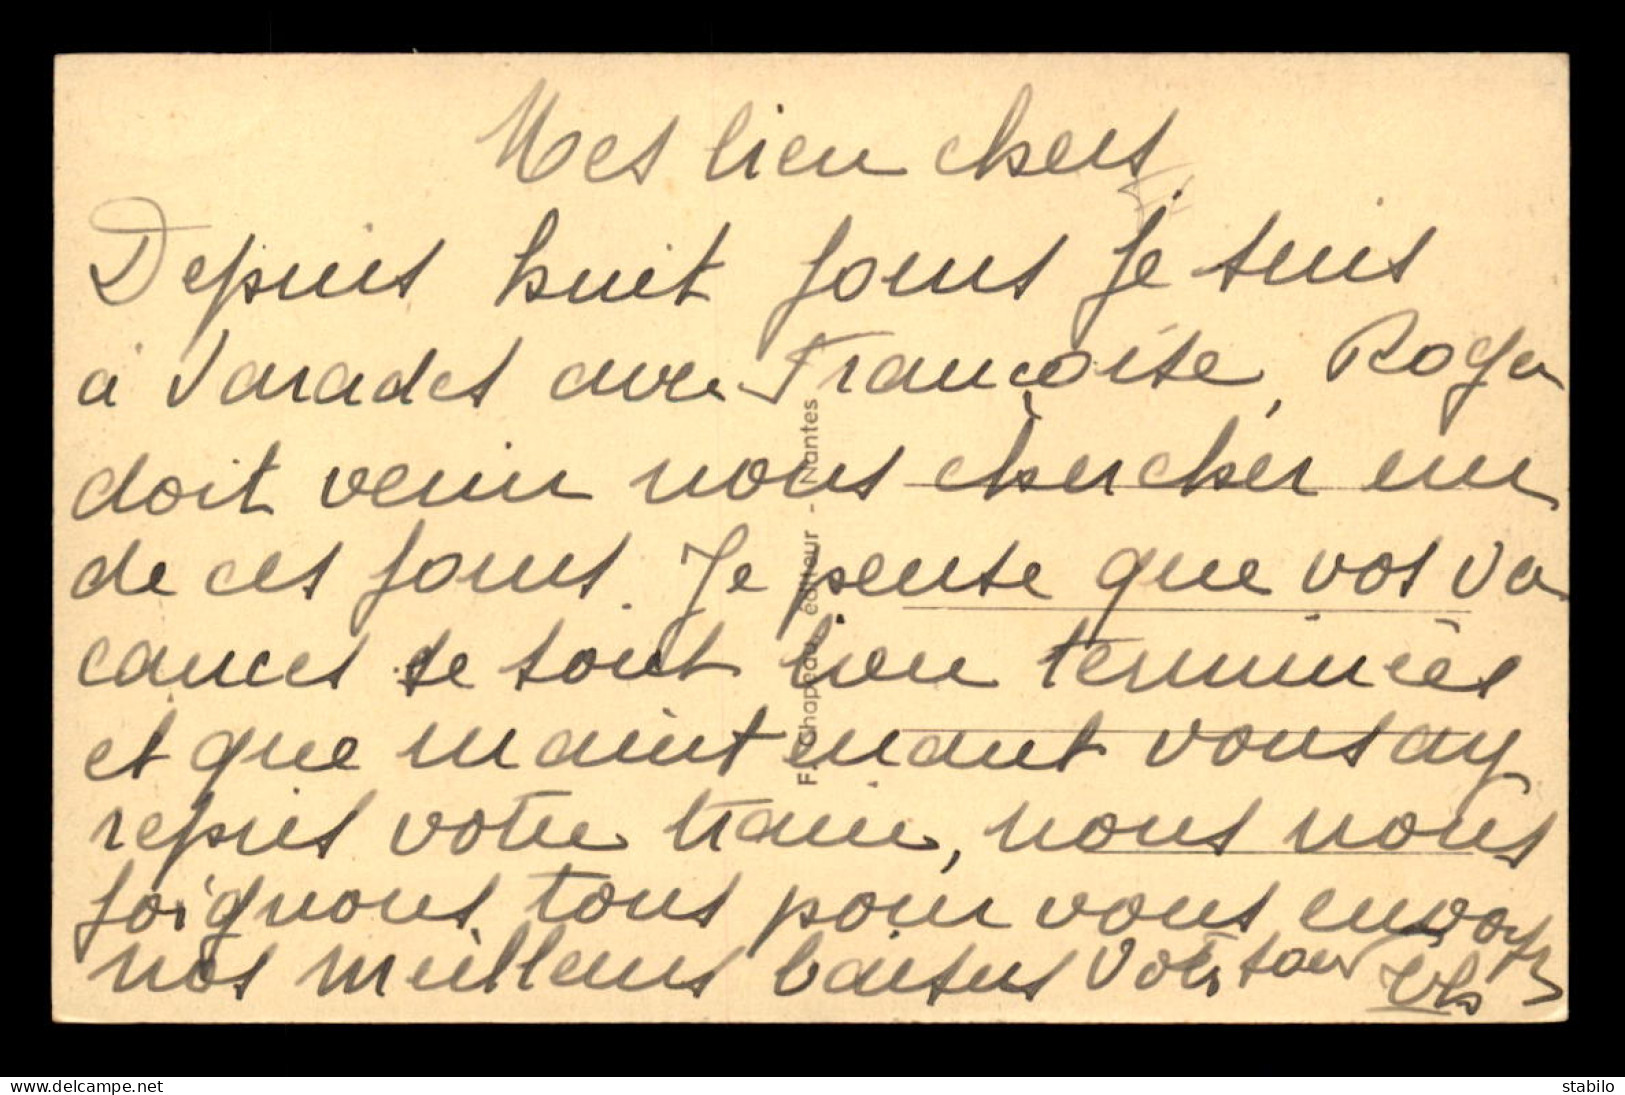 Mes bien chers
Depuis huit jours je suis
à Varades avec Françoise, Roger
doit venir nous chercher un
de ces jours. Je pense que vos va
cances se sont bien terminées
et que maintenant vous ay
repris votre train, nous nous
joignons tous pour vous envoyer
nos meilleurs baisers Votre
F. Chapeau, éditeur - Nantes
www.delcampe.net
stabilo